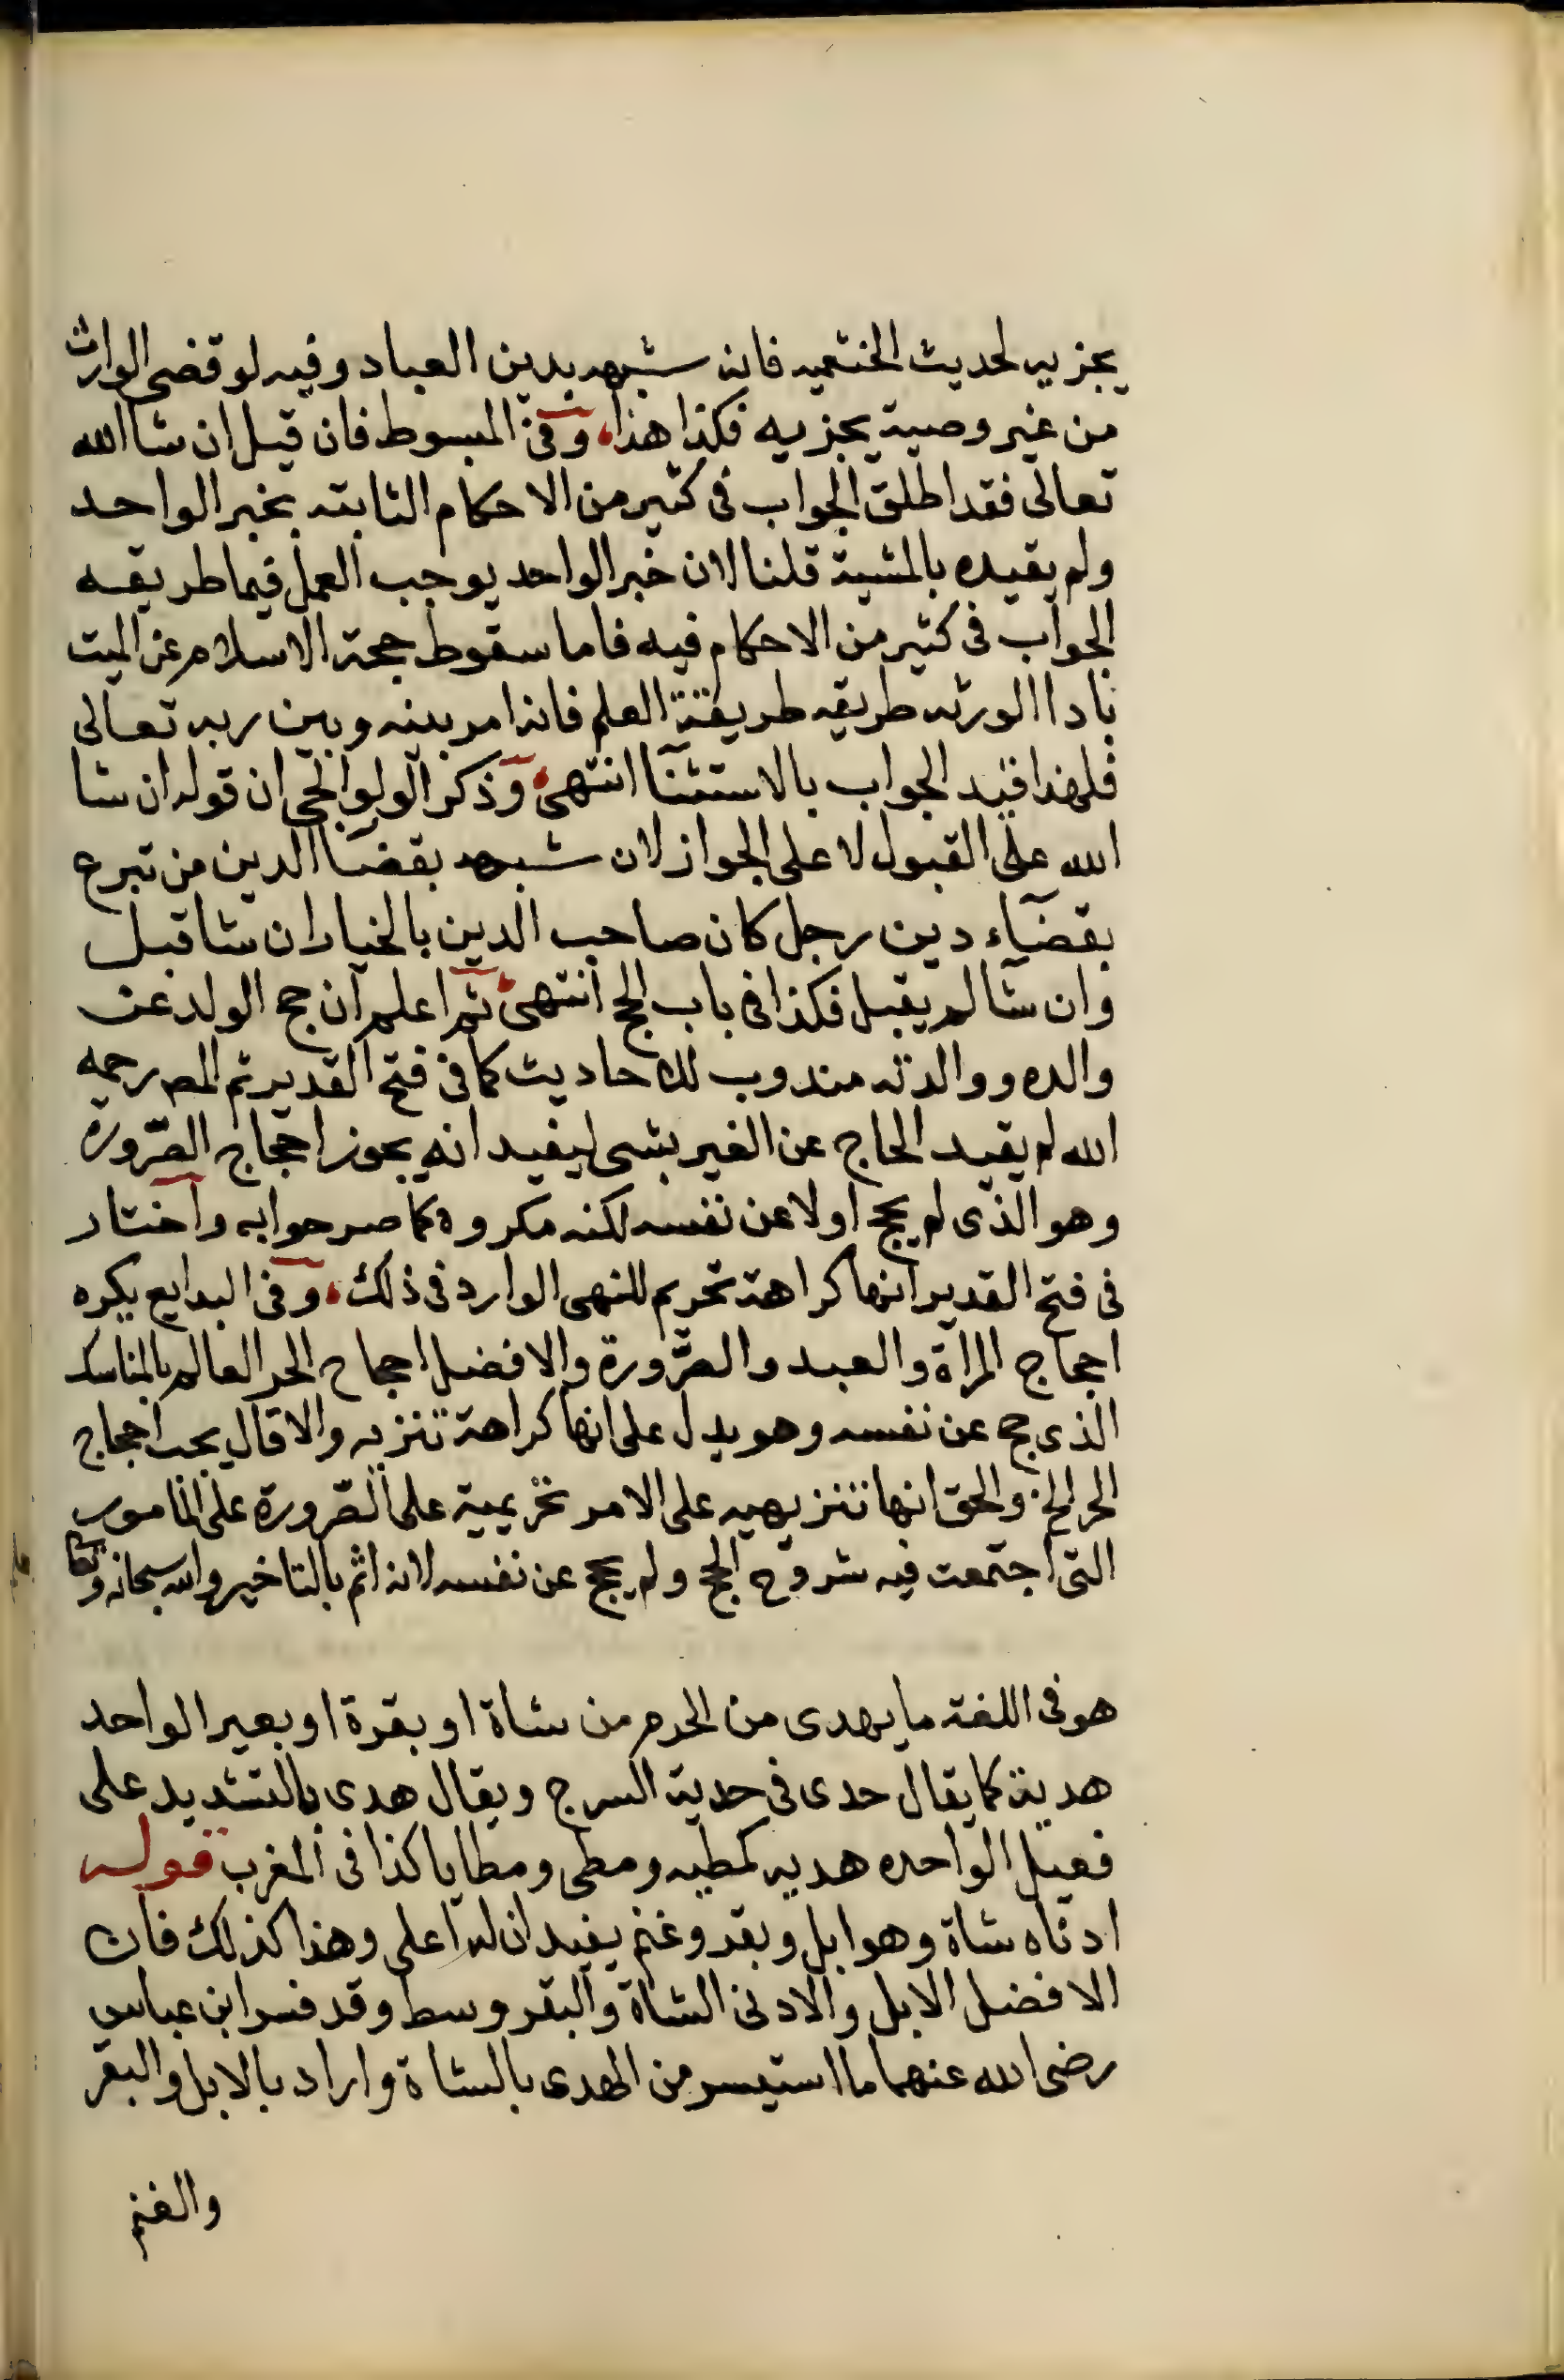 يجزيه لحديث الخثعميه فانه شبهه بدين العباد وفيه لو قضى الوارث
من غير وصية يجزيه فكذا هذا، وفى المبسوط فان قيل ان شا الله
تعالى فقد اطلق الجواب فى كثير من الاحكام الثابته بخبر الواحد
ولم يقيده بالمشية قلنا لان خبر الواحد يوجب العمل فيما طريقه
الجواب فى كثير من الاحكام فيه فاما سقوط حجة الاسلام عن الميت
بادا الورثه طريقه طريقة العلم فانه امر بينه وبين ربه تعالى
فلهذا قيد الجواب بالاستثنآ انتهى، وذكر الولوالجى ان قوله ان شا
الله على القبول لا على الجواز لان شبهه بقضآ الدين من تبرع
بقضآء دين رجل كان صاحب الدين بالخيار ان شا قبل
وان شآ لم يقبل فكذا فى باب الحج انتهى، ثم اعلم ان حج الولد عن
والده ووالدته مندوب للاحاديث كما فى فتح القدير ثم المص رحمه
الله لم يقيد الحاج عن الغير بشى ليفيد انه يجوز احجاج الصّرورة
وهو الذى لم يحج اولا عن نفسه لكنه مكروه كما صرحوا به واختار
فى فتح القدير انها كراهة تحريم للنهى الوارد فى ذلك، وفى البدايع يكره
احجاج المراة والعبد والصّرورة والافضل احجاج الحر العالم بالمناسك
الذى حج عن نفسه وهو يدل على انها كراهة تنزيه والا قال يجب احجاج
الحر الخ والحق انها تنزيهيه على الامر تحريمية على الصّرورة على المامور
التى اجتمعت فيه شروح الحج ولم يحج عن نفسه لانه اثم بالتاخير والله سبحانه وتعا
هو فى اللغة ما يهدى من الحرم من شاة او بقرة او بعير الواحد
هدية كما يقال حدى فى حدية السرج ويقال هدى بالتشديد على
فعيل الواحده هديه كمطيه ومطى ومطايا كذا فى المغرب قوله
ادناه شاة وهو ابل وبقر وغنم يفيد ان له اعلى وهذا كذلك فان
الافضل الابل والادنى الشاة والبقر وسط وقد فسر ابن عباس
رضى الله عنهما ما استيسر من الهدى بالشاة واراد بالابل والبقر
والغنم